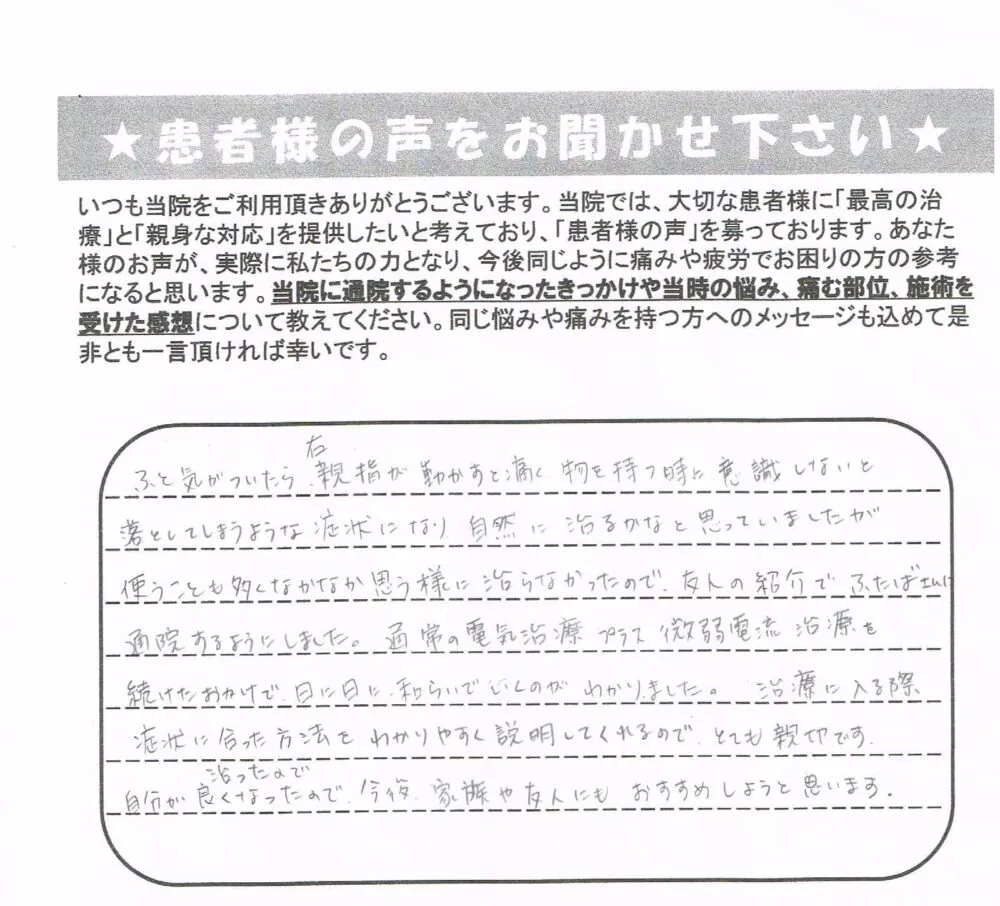 ★患者様の声をお聞かせ下さい★
いつも当院をご利用頂きありがとうございます。当院では、大切な患者様に「最高の治
療」と「親身な対応」を提供したいと考えており、「患者様の声」を募っております。あなた
様のお声が、実際に私たちの力となり、今後同じように痛みや疲労でお困りの方の参考
になると思います。当院に通院するようになったきっかけや当時の悩み、痛む部位、施術を
受けた感想について教えてください。同じ悩みや痛みを持つ方へのメッセージも込めて是
非とも一言頂ければ幸いです。
右
ふと気がついたら、親指が動かすと痛く、物を持つ時に意識しないと
落としてしまうような症状になり、自然に治るかなと思っていましたが
使うことも多くなかなか思う様に治らなかったので、友人の紹介でふたばさんに
通院するようにしました。通常の電気治療プラス微弱電流治療を
続けたおかげで、日に日に、和らいでいくのがわかりました。治療に入る際
症状に合った方法をわかりやすく説明してくれるので、とても親切です。
治ったので
自分が良くなったので、今後、家族や友人にもおすすめしようと思います。